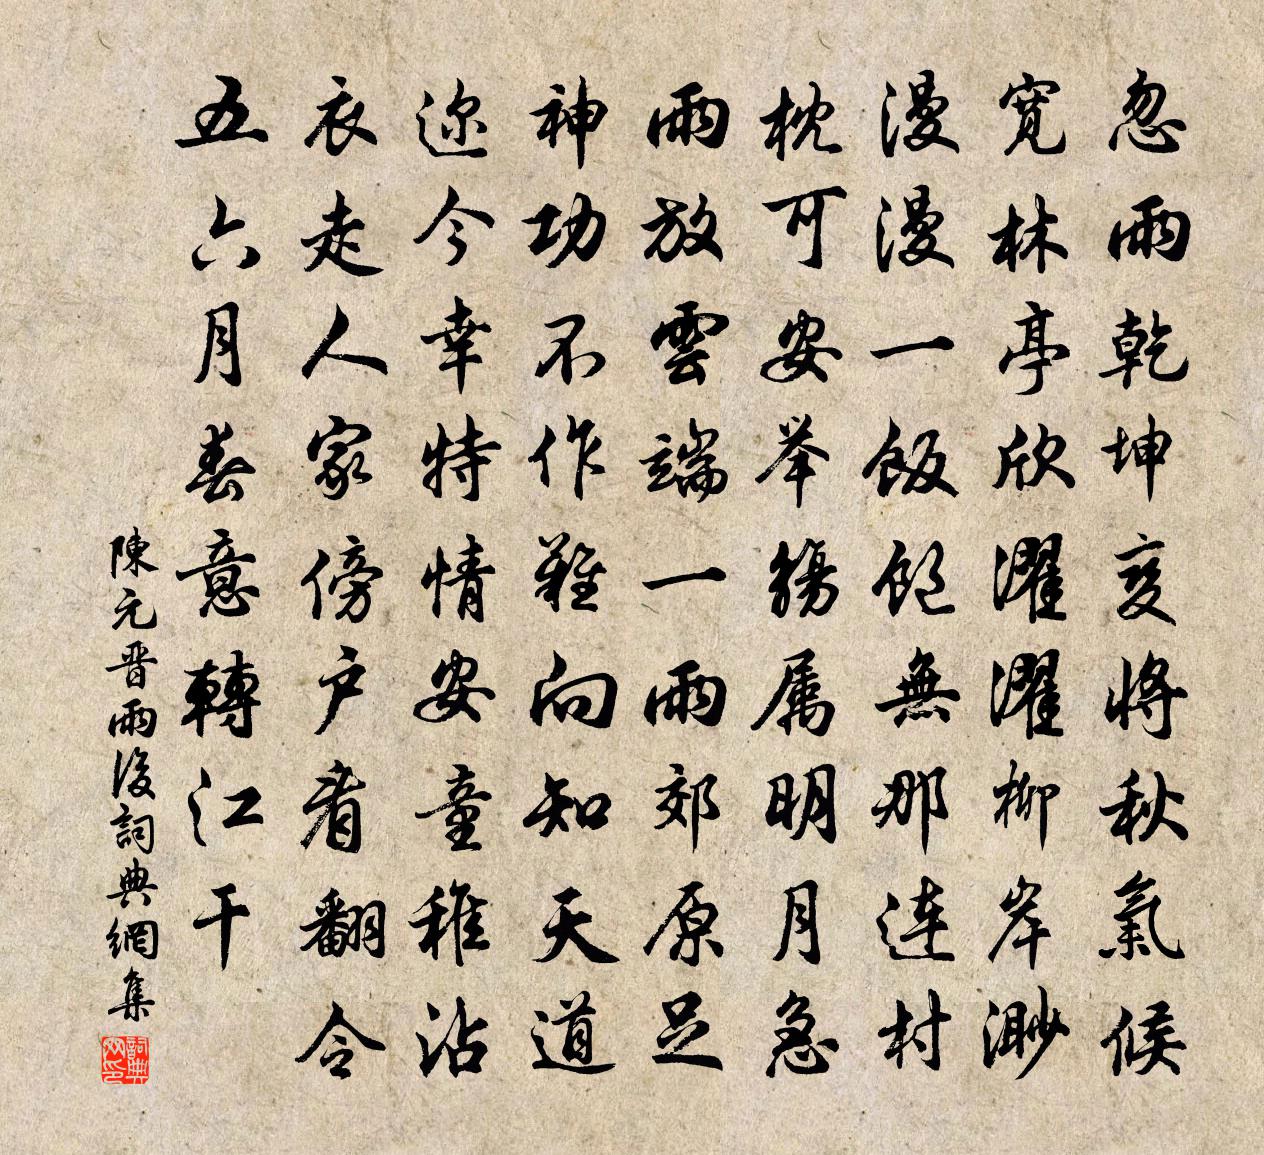 忽雨乾坤変将秋氣候
寬林亭欣濯濯柳岸渺
漫漫一飯飽無那連村
枕可安举觴属明月急
雨放雲端一雨郊原足
神功不作難向知天道
迩今幸特情安童稚沾
衣走人家傍户看翻令
五六月春意轉江干
陳元晋雨後詞典網集
詞典网印